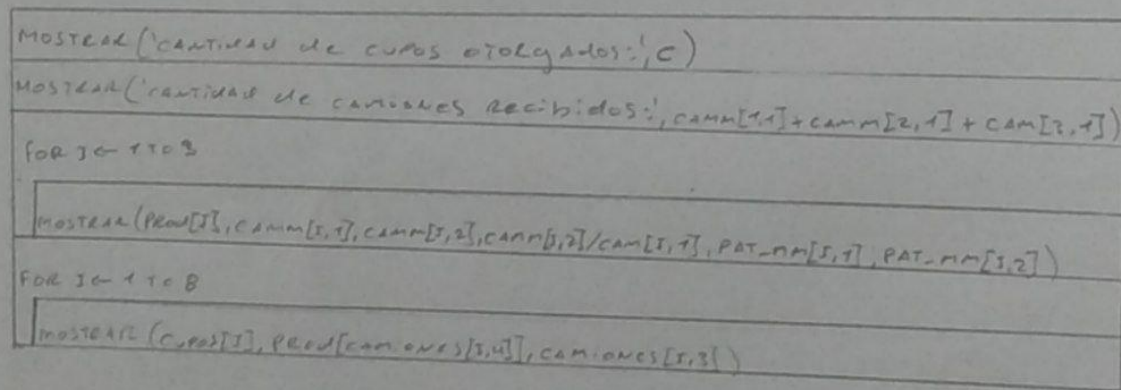 MOSTRAR('CANTIDAD de CUPOS OTORGADOS:',C)
MOSTRAR('CANTIDAD de CAMIONES RECIBIDOS:',CAMM[1,1]+CAMM[2,1]+CAM[3,1])
FOR I←1 TO 3
MOSTRAR(PROD[I],CAMM[I,1],CAMM[I,2],CAMM[I,2]/CAM[I,1],PAT_MM[I,1],PAT_MM[I,2])
FOR I←1 TO B
MOSTRAR(CUPOS[I],PROD[CAMIONES[I,4]],CAMIONES[I,3])